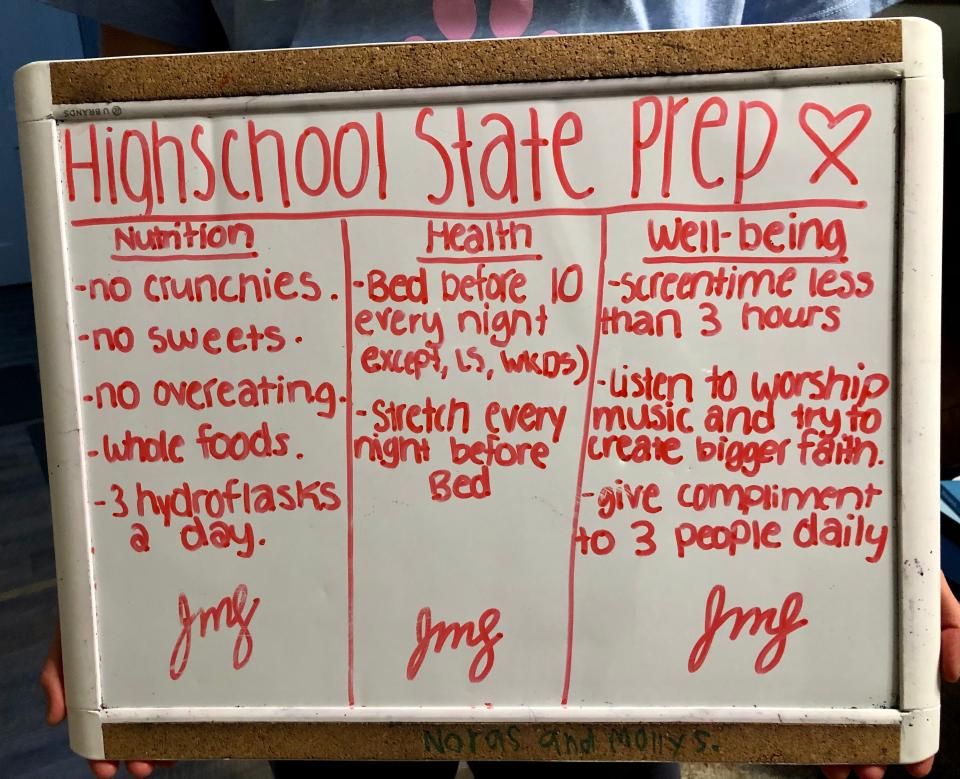 U BRANDS
Highschool State Prep
Nutrition
-no crunchies.
-no sweets.
-no overeating.
-whole foods.
-3 hydroflasks
a day.
Jmg
Health
-Bed before 10
every night
except, LS, WKDS)
-Stretch every
night before
Bed
Jmg
Well-being
-screentime less
than 3 hours
-Listen to worship
music and try to
create bigger faith.
-give compliment
to 3 people daily
Jmg
Noras and Mollys.